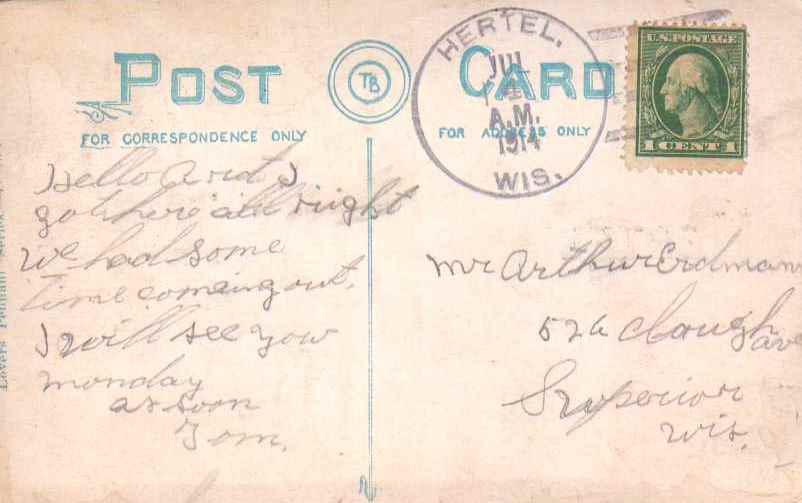 POST CARD
TB
FOR CORRESPONDENCE ONLY
FOR ADDRESS ONLY
HERTEL.
JUL
A.M.
1914
WIS.
U.S. POSTAGE
1 CENT 1
Hello Art I
got here all right
we had some
time comeing out.
I will see you
monday
as soon
Tom.
mr Arthur Erdmann
526 Clough ave
Superior
Wis.
Lovers Pennant Series